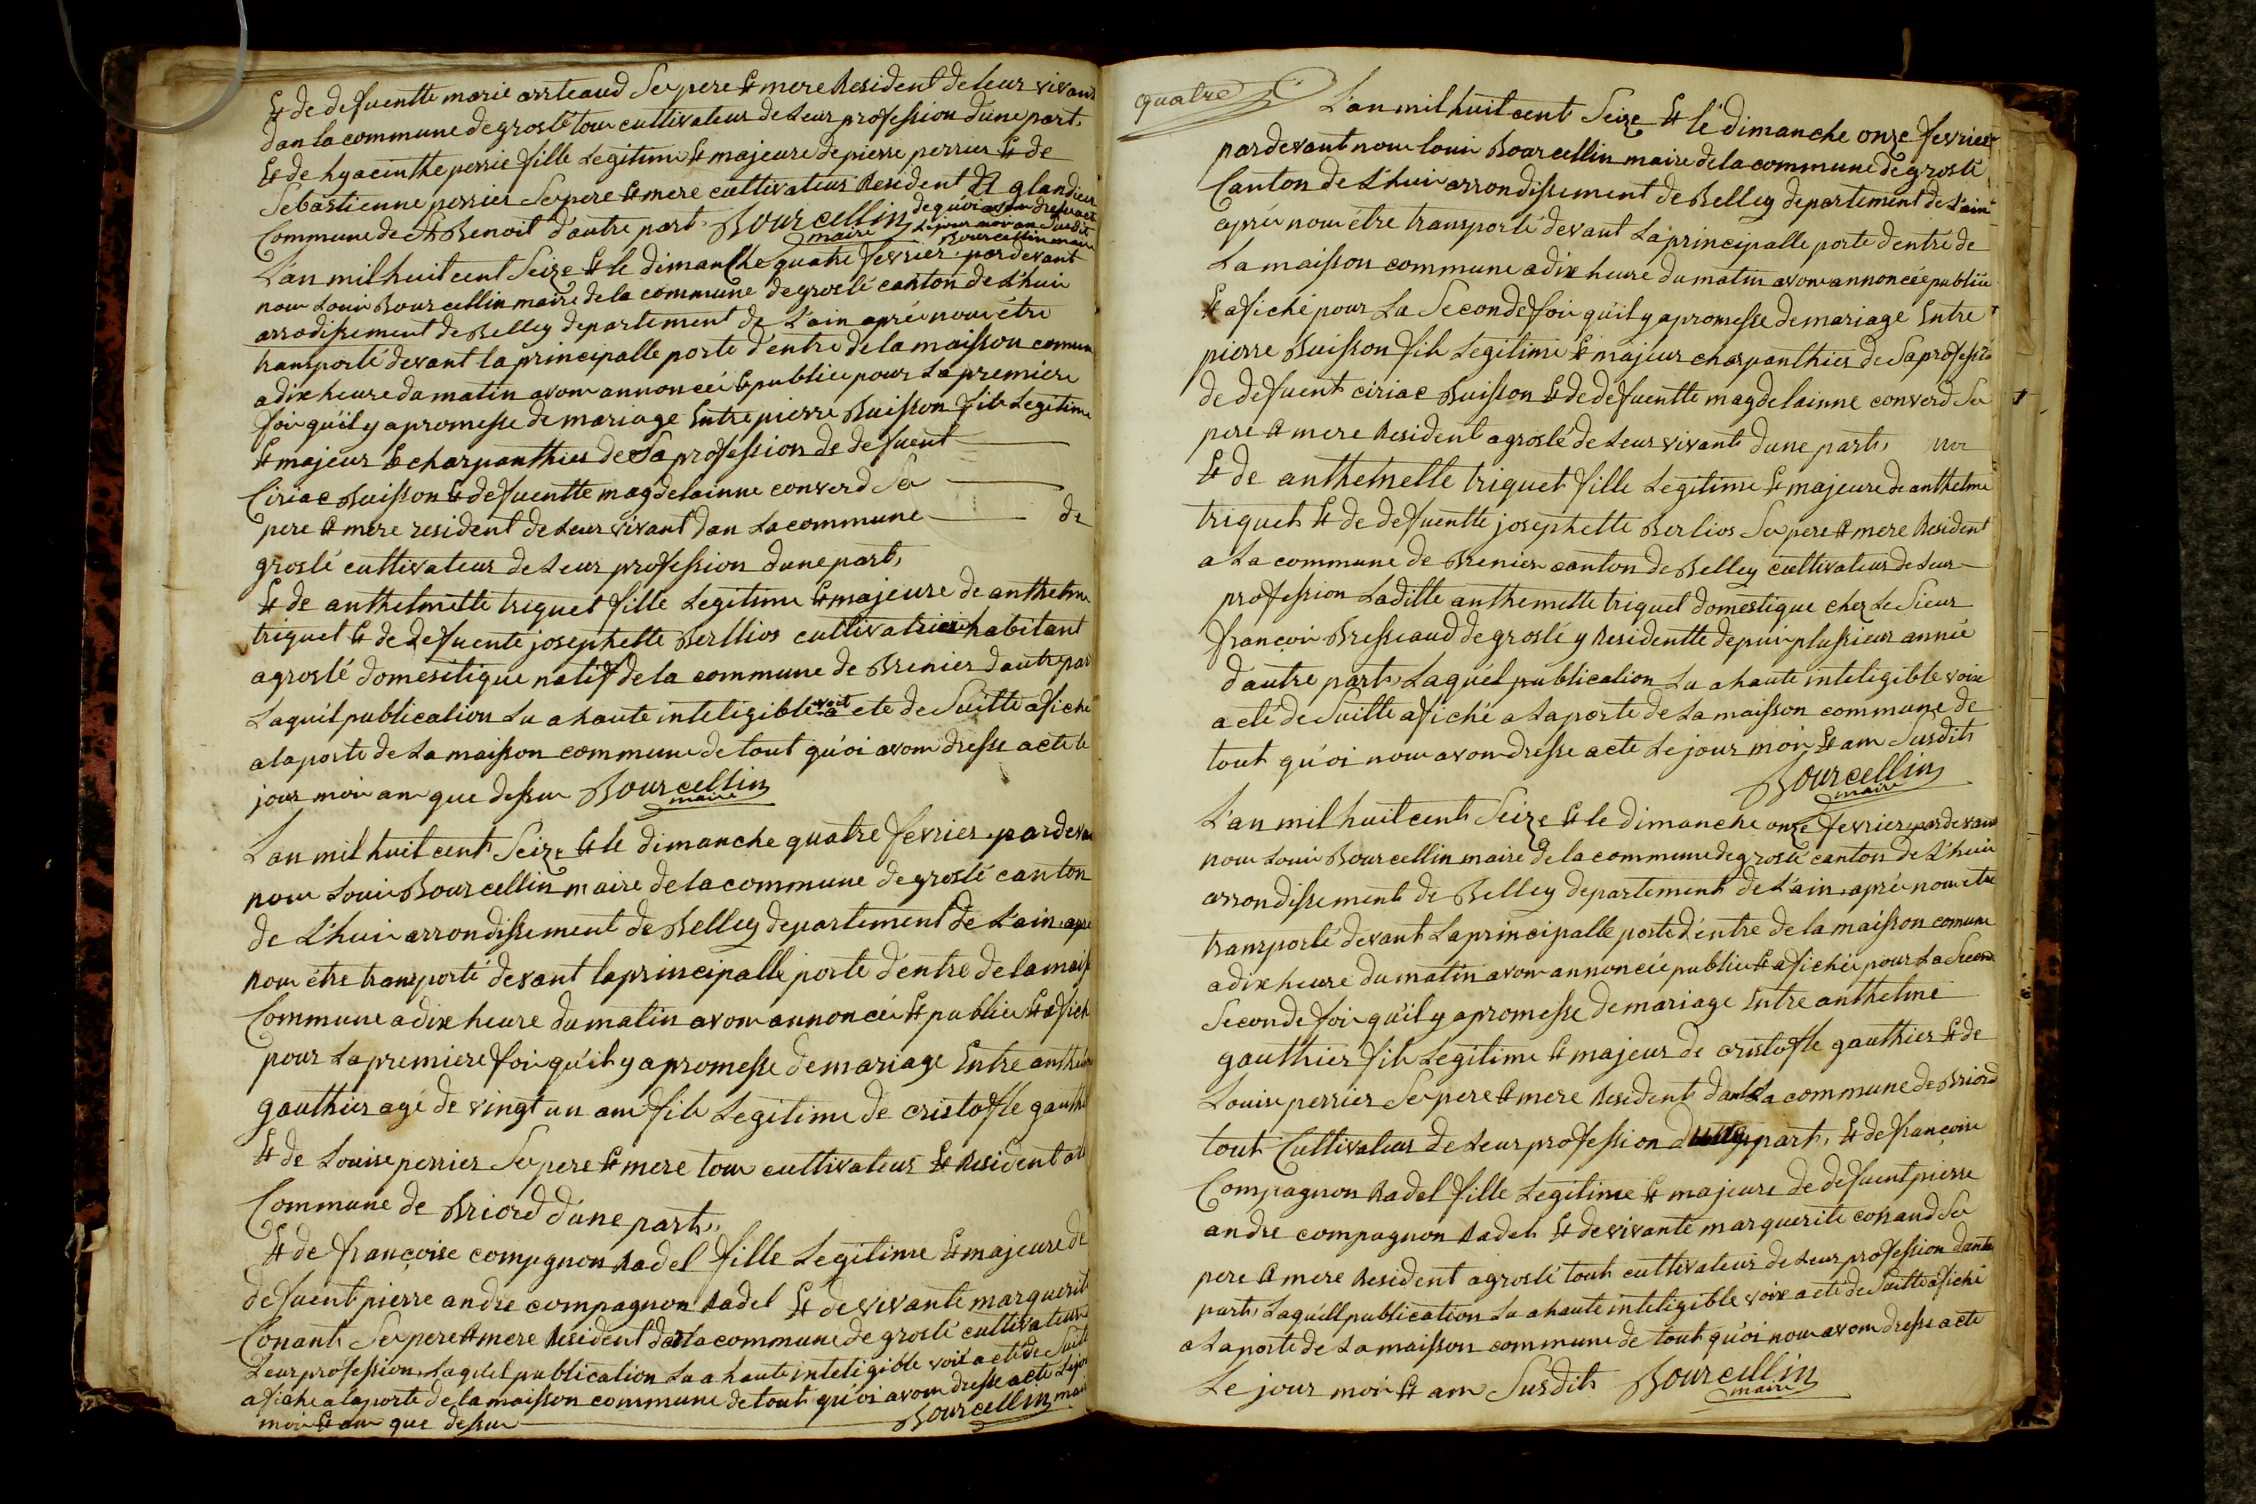 Et de defuentte marie arrteaud Ses pere Et mere Resident de leur vivant
dan la commune de groslé tous cultivateur de Leur profession d'une part,
Et de hyacinthe perrié fille Legitime Et majeure de pierre perrier Et de
Sebastienne perrier Ses pere Et mere cultivateur Resident A glandieu
Commune de St Benoit d'autre part. Bourcellin maire de qu'oi avon dressé acte
Le jour moi an Susdit
Bourcellin maire
L'an mil huit cent Seize Et le dimanche quatre fevrier pardevant
nous Louis Bourcellin maire de la commune de groslé canton de L'huis
arrodissement de Belley departement de L'ain aprés nous étre
transporté devant la principalle porte d'entre de la maisson comune
a dix heure du matin avons annoncéé Et publiée pour La premiere
fois qu'il y a promesse de mariage Entre pierre Buisson fils Legitime
Et majeur Et charpanthier de Sa profession de defuent
Ciriac Buisson Et defuentte magdelainne converd Ses
pere Et mere resident de Leur vivant dan La commune de
groslé cultivateur de Leur profession dune part,
Et de anthelmette triquet fille Legitime Et majeure de anthelme
triquet Et de defuente josephette Berllios cultivatrice habitant
a groslé domesitique natif de la commune de Brenier dautre part
Laquél publication Lu a haute inteligible voit a ete de Suitte afiché
a la porte de La maisson commune de tout qu'oi avom dresse acte le
jour moi an que dessus Bourcellin
maire
L'an mil huit cent Seize Et le dimanche quatre fevrier pardevan
nous Louis Bourcellin maire de la commune de groslé canton
de L'huis arrondissement de Belley departement de L'ain apré
nous étre transporté devant la principalle porte d'entre de la maiss
Commune a dix heure du matin avons annoncéé Et publiée Et afich
pour La premiere fois qu'il y a promesse de mariage Entre anthelm
gauthier agé de vingt un ans fils Legitime de cristoffle gauthi
Et de Louise perrier Ses pere Et mere tous cultivateur Et Resident a la
Commune de Briord d'une part,
Et de françoise compgnon Radel fille Legitime Et majeure de
defuent pierre andre compagnon Radel Et de vivante marguerit
Conant Ses pere Et mere Resident dan la commune de groslé cultivateur
Leur profession, Laquel publication Lu a haute inteligible voix a ete de Suite
afiche a la porte de la maisson commune de tout qu'oi avom dresse acte Le jou
moi Et an que dessus Bourcellin mair
quatre
L'an mil huit cent Seize Et le dimanche onze fevrier
pardevant nous louis Bourcellin maire de la commune de groslé
Canton de L'huis arrondissement de Belley departement de L'ain
aprés nous étre transporté devant La principalle porte d'entré de
La maisson commune a dix heure du matin avons annoncéé publiée
Et afiché pour La Seconde fois qu'il y a promesse de mariage Entre
pierre Buisson fils Legitime Et majeur charpanthier de Sa professio
de defuent ciriac Buisson Et de defuentte magdelainne converd Ses
pere Et mere Resident a groslé de Leur vivant dune part,
Et de anthelmette triquet fille Legitime Et majeure de anthelme
triquet Et de defuentte josephette Berlios Ses pere Et mere Resident
a La commune de Brenier canton de Belley cultivateur de Leur
profession Laditte anthemette triquet domestique chez Le Sieur
françois Bresseaud de groslé y Residentte depuis plussieur année
d'autre part, Laquél publication Lu a haute inteligible voix
a eté de Suitte afiché a La porte de La maisson commune de
tout qu'oi nous avom dresse acte Le jour moi Et an Susdit
Bourcellin
maire
L'an mil huit cent Seize Et le dimanche onze fevrier pardevant
nous Louis Bourcellin maire de la commune de groslé canton de L'huis
arrondissement de Belley departement de L'ain, aprés nous etre
transporté devant La principalle porte d'entre de la maisson comune
a dix heure du matin avons annoncéé publiée Et afichée pour La Secon
Seconde fois qu'il y a promesse de mariage Entre anthelme
gauthier fils Legitime Et majeur de cristoffle gauthier Et de
Louise perrier Ses pere Et mere Resident dan La commune de Briord
tout Cultivateur de Leur profession d'une part, Et de françoise
Compagnon Radel fille Legitime Et majeure de defuent pierre
andre compagnon Radel Et de vivante marguerite conand Ses
pere Et mere Resident a groslé tout cultivateur de Leur profession dautre
part, Laquéll publication Lu a haute inteligible voix a eté de Suitte afiché
a La porte de La maisson commune de tout qu'oi nous avom dresse acte
Le jour moi Et an Susdit Bourcellin
maire